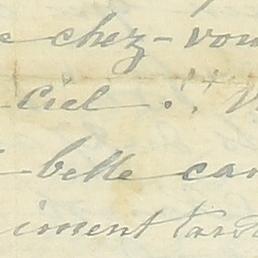 e chez-vou
ciel !! V
belle car
iment tant